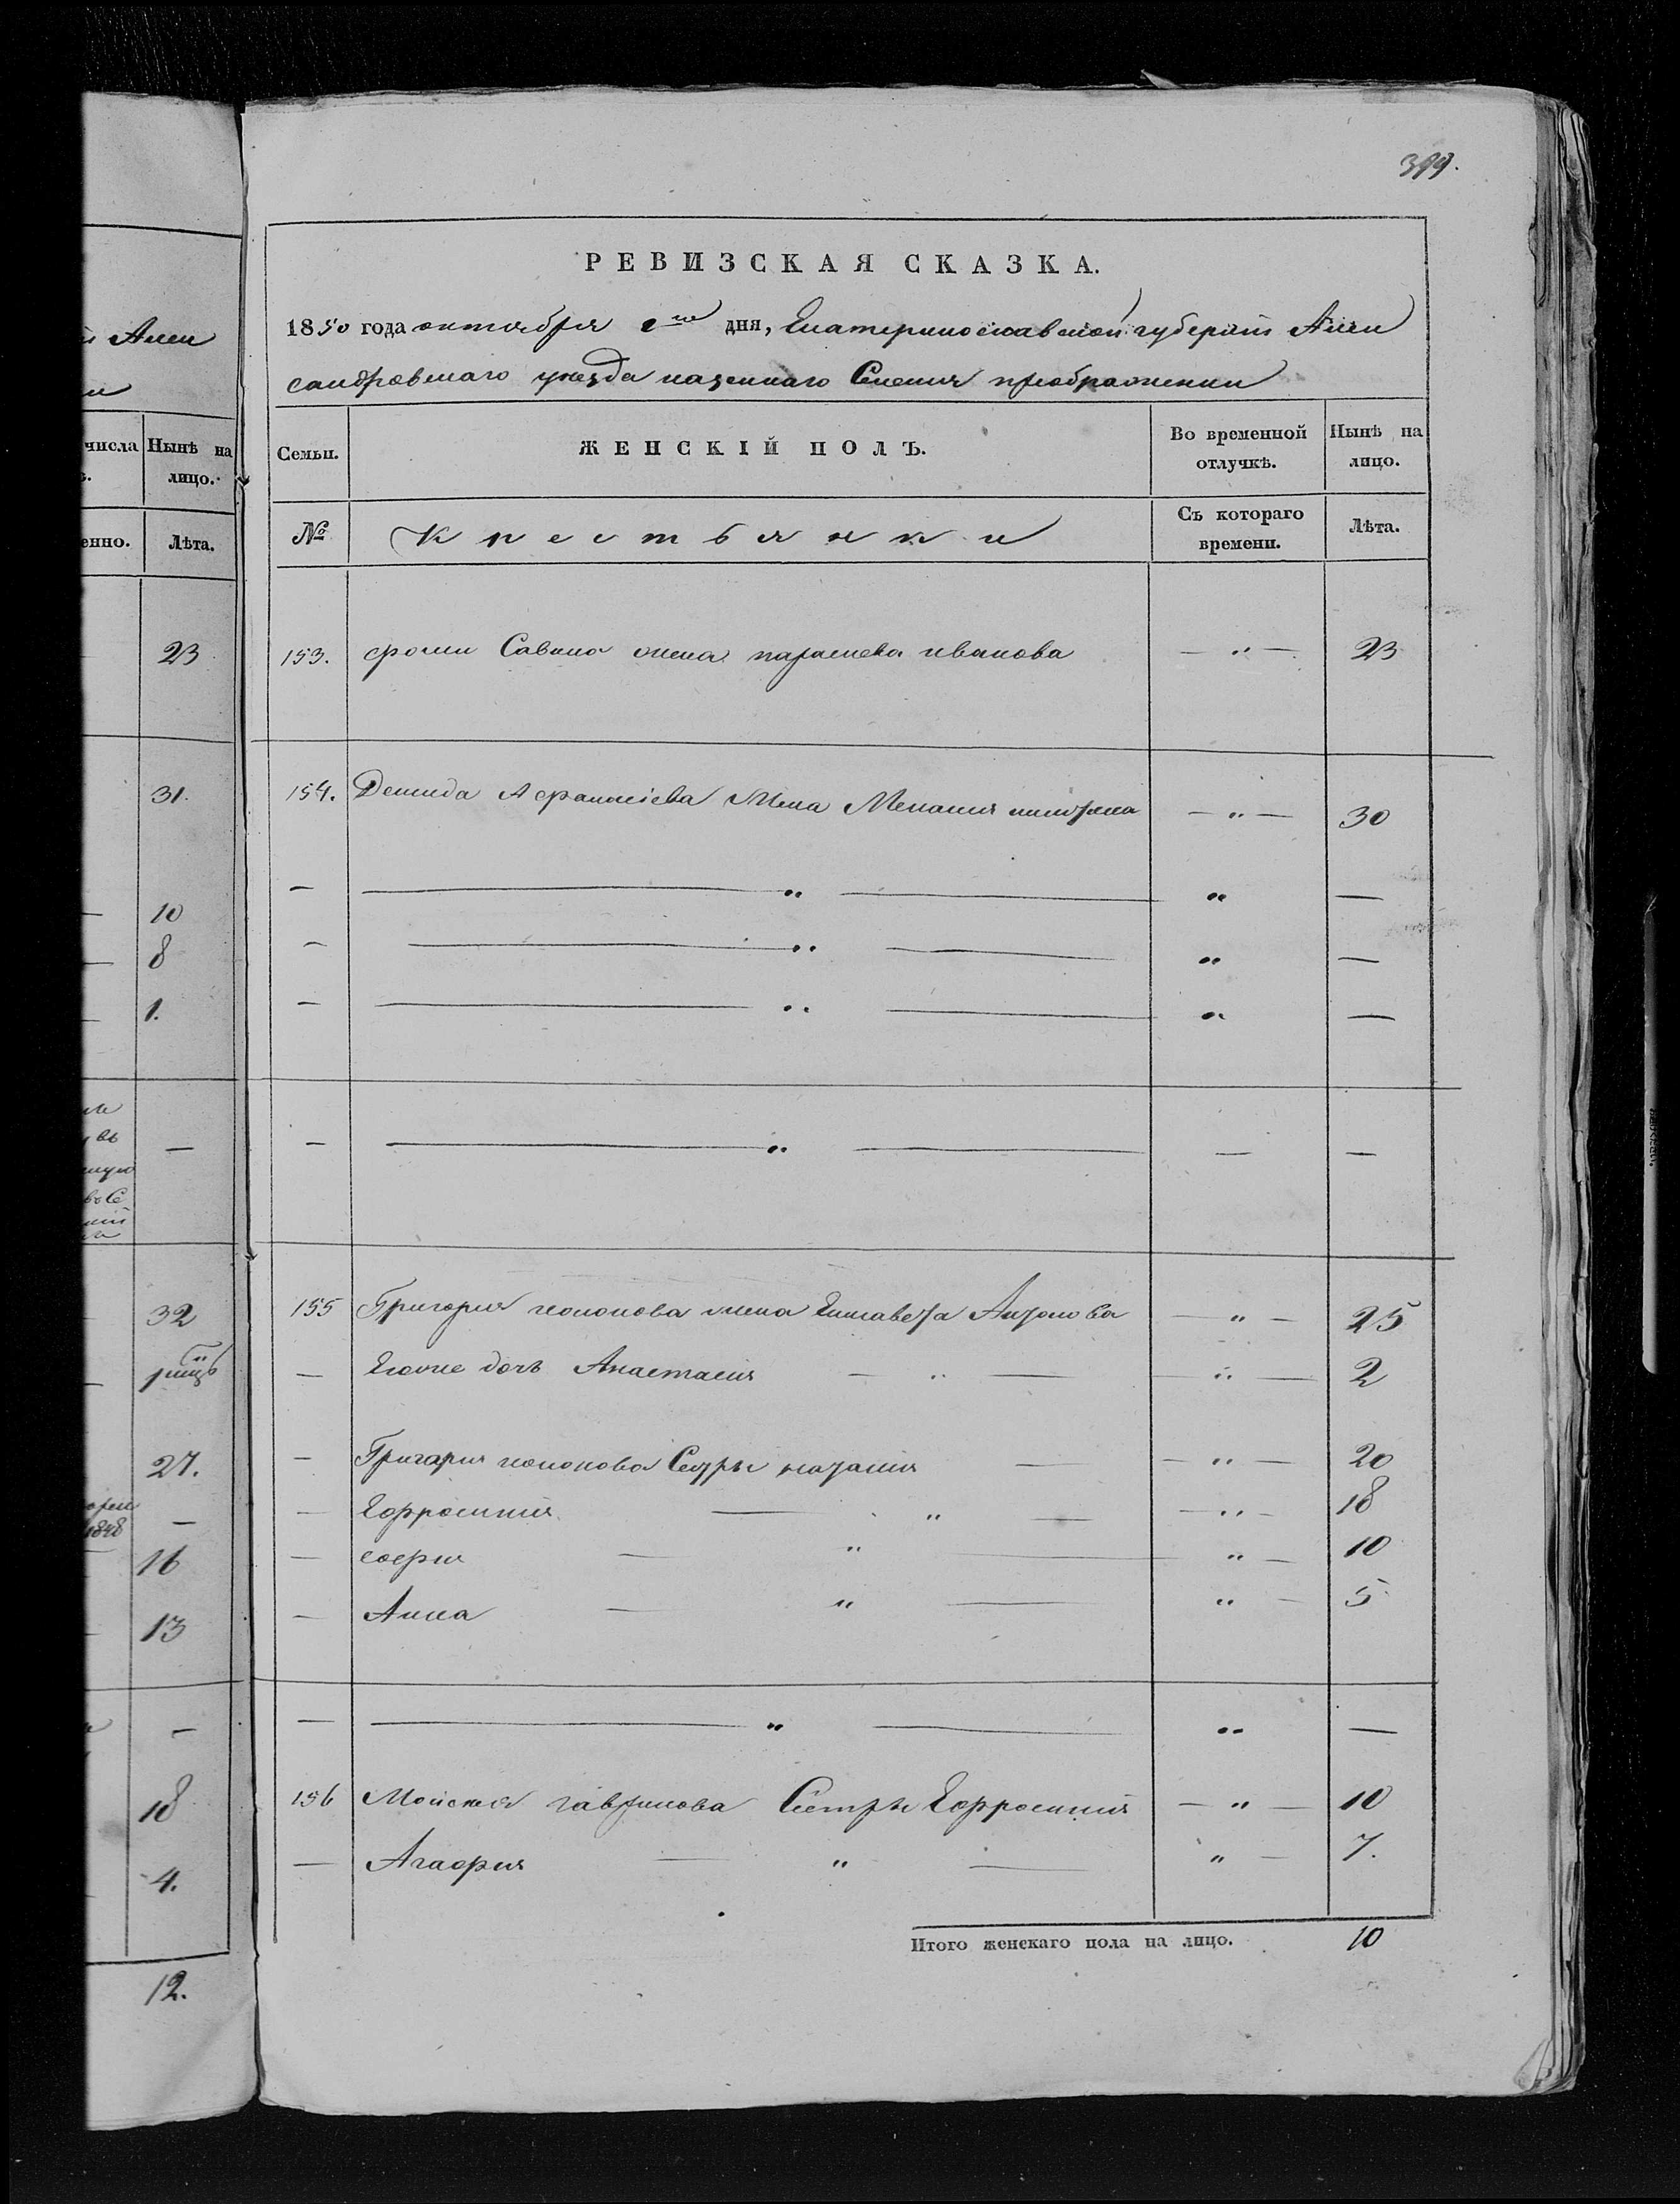 399.
РЕВИЗСКАЯ СКАЗКА.
1850 года октября 2го дня, Екатеринославской губернiи Алек
сандровскаго уезда казеннаго Селенiя преображенки
Семьи.
ЖЕНСКІЙ ПОЛЪ.
Во временной отлучкѣ.
Нынѣ на лицо.
№
Крестьянки
Съ котораго времени.
Лѣта.
153. фомы Савина жена параскева иванова — „ — 23
154. Демида Афанасiева жена Мелания — „ — 30
— — „ — „ —
— — „ — „ —
— — „ — „ —
— — „ — — —
155 Григория кононова жена Елисавета Антонова — „ — 25
— Егоже дочь Анастасия — „ — — „ — 2
— Григория кононова Сестры наталия — — „ — 20
— Ефросиния — „ — — „ — 18
— софия — „ — „ — 10
— Анна — „ — „ — 5
— — „ — „ —
156 Мойсея гаврилова Сестры Ефросиния — „ — 10
— Агафия — „ — „ — 7.
Итого женскаго пола на лицо. 10
й Алек
и
числа
Нынѣ на лицо.
енно.
Лѣта.
23
31.
10
8
1.
въ
—
32
27.
1848 —
16
13
—
18
4.
12.